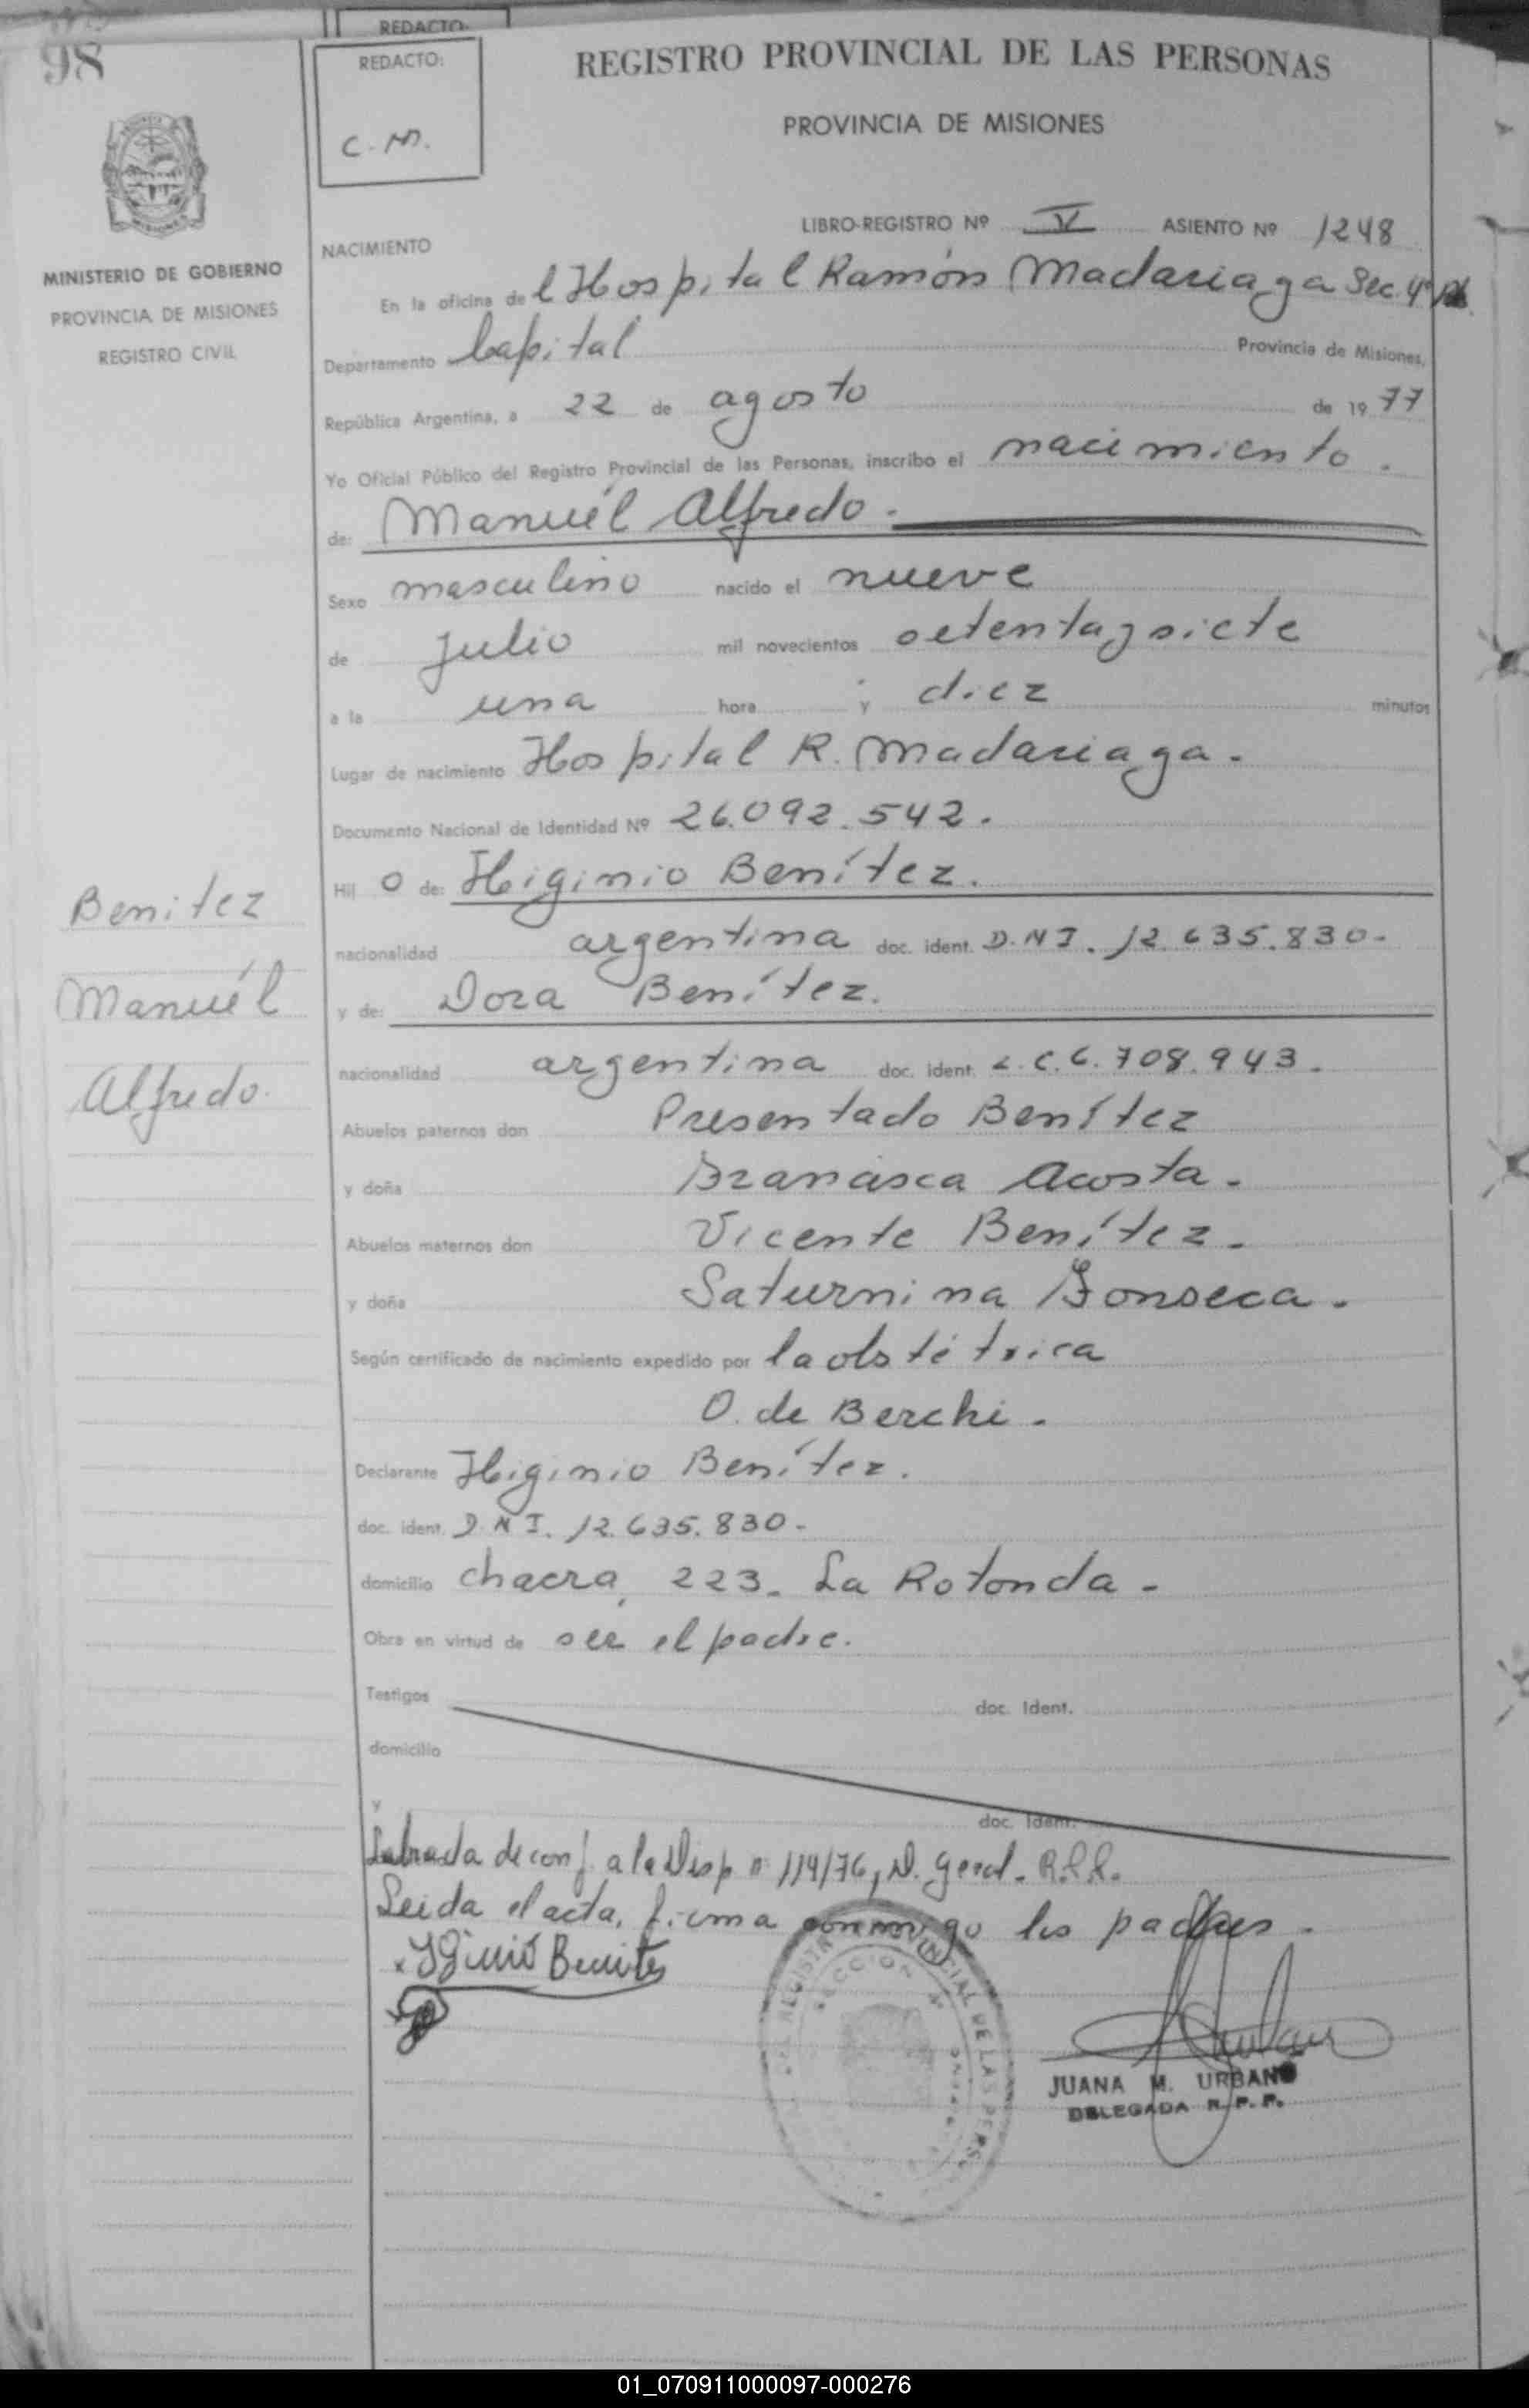 98
REDACTO:
REDACTO:
C. M.
REGISTRO PROVINCIAL DE LAS PERSONAS
PROVINCIA DE MISIONES
MINISTERIO DE GOBIERNO
PROVINCIA DE MISIONES
REGISTRO CIVIL
LIBRO-REGISTRO Nº V ASIENTO Nº 1248
NACIMIENTO
En la oficina de l Hospital Ramón Madariaga Sec. 4º
Departamento Capital Provincia de Misiones,
República Argentina, a 22 de agosto de 1977
Yo Oficial Público del Registro Provincial de las Personas, inscribo el nacimiento.
de: Manuél Alfredo.
Sexo masculino nacido el nueve
de julio mil novecientos setentaysiete
a la una hora y diez minutos
Lugar de nacimiento Hospital R. Madariaga.
Documento Nacional de Identidad Nº 26.092.542.
Hij o de: Higinio Benítez.
nacionalidad argentina doc. ident. D.N.I. 12.635.830-
y de: Dora Benítez.
nacionalidad argentina doc. ident. L.C. 6.708.943.
Benitez
Manuél
Alfredo.
Abuelos paternos don Presentado Benítez
y doña Francisca Acosta.
Abuelos maternos don Vicente Benítez.
y doña Saturnina Fonseca.
Según certificado de nacimiento expedido por la obstétrica
O. de Berchi.
Declarante Higinio Benítez.
doc. ident. D.N.I. 12.635.830-
domicilio chacra, 223. La Rotonda-
Obra en virtud de ser el padre.
Testigos doc. Ident.
domicilio
y doc. Ident.
Labrada de conf. a la Disp nº 114/76, D. Geral. R.P.P.
Leida el acta, firma conmigo los padres.
Iginio Benites
REGISTRO PROVINCIAL DE LAS PERS
SECCION 4ª
JUANA M. URBANO
DELEGADA R.P.P.
01_070911000097-000276